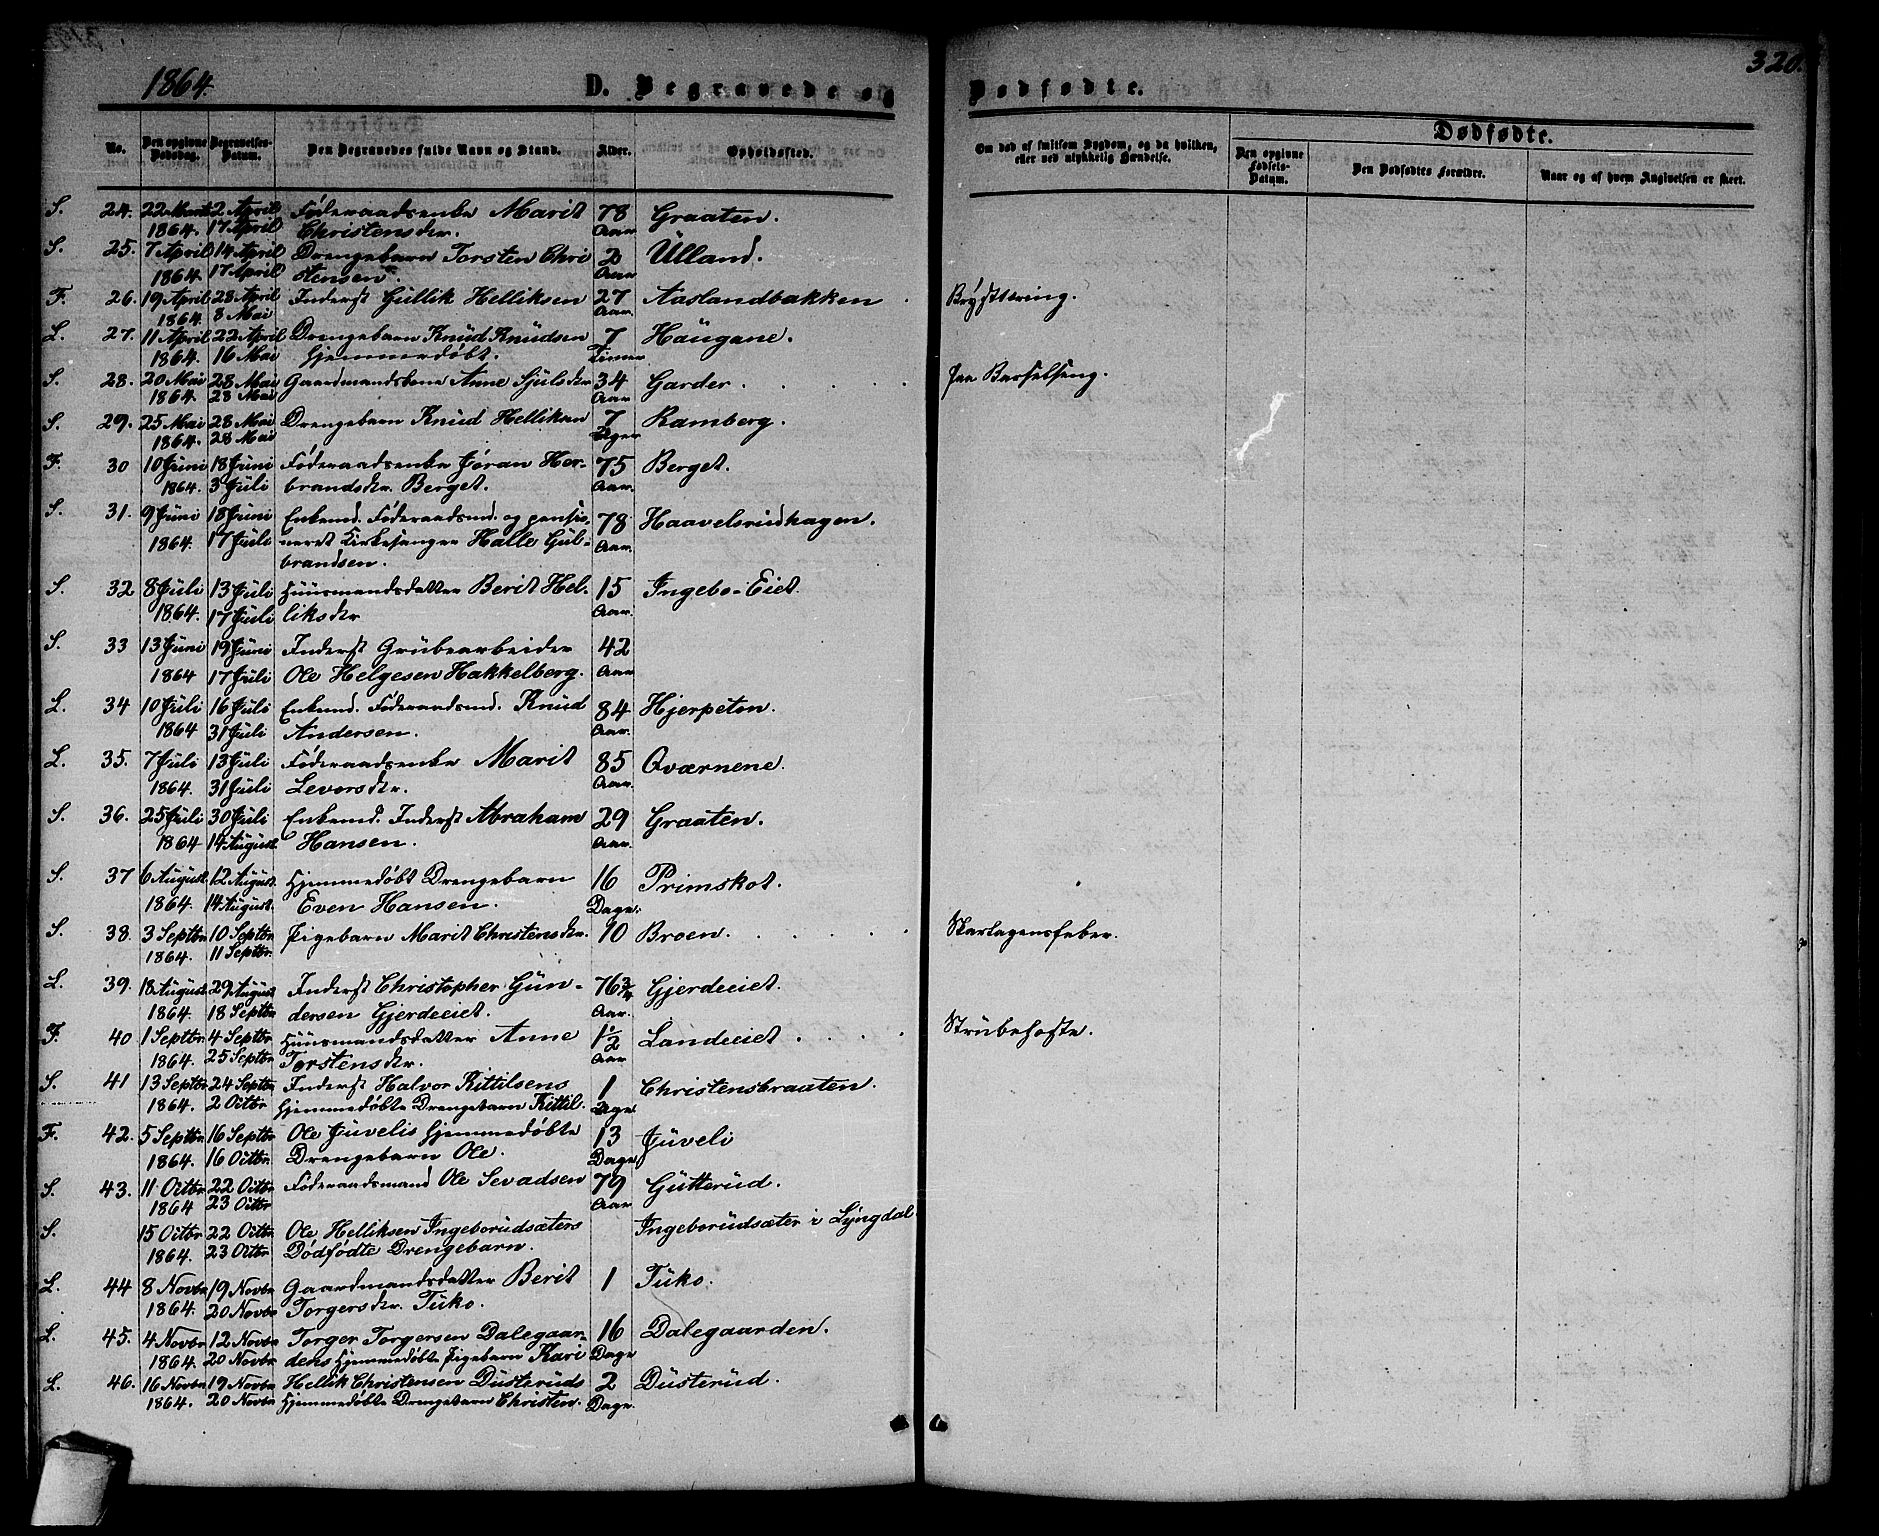 320.
1864.
D. Begravede og Dødfødte.
No. Den opgivne Dødsdag. Begravelses-Datum. Den Begravedes fulde Navn og Stand. Alder. Opholdssted. Om død af smitsom Sygdom, og da hvilken, eller ved ulykkelig Hændelse. Dødfødte. Den opgivne Fødsels-Datum. Den Dødfødtes Forældre. Naar og af hvem Angivelsen er skeet.
S. 24. 22 Marts 2 April Føderaadsenke Marit 78 Graaten.
1864. 17 April Christensdr. Aar.
S. 25. 7 April 14 April Drengebarn Torsten Chri 2 Ülland.
1864. 17 April stensen. Aar
F. 26. 19 April 28 April Inderst Gullik Helliksen 27 Aaslandbakken . Brysttæring.
1864. 8 Mai Aar.
L. 27. 11 April 22 April Drengebarn Knud Knudsen 7 Haugane.
1864. 16 Mai hjemmedøbt. Timer
S. 28. 20 Mai 28 Mai Gaardmandskone Anne Sjulsdr 34 Garder . . . . . paa Barselseng.
1864. 28 Mai Aar.
S. 29. 25 Mai 28 Mai Drengebarn Knud Helliksen 7 Ramberg.
1864. 28 Mai Uger
F. 30 10 Juni 18 Juni Føderaadsenke Jøran Her- 75 Berget.
1864. 3 Juli brandsdr. Berget. Aar.
S. 31. 9 Juni 18 Juni Enkemd. Føderaadsmd. og pensio 78 Haavelsrudhagen.
1864. 17 Juli neret Kirkesanger Halle Gul- Aar.
brandsen.
S. 32 8 Juli 13 Juli Huusmandsdatter Berit Hel- 15 Ingebo-Eiet.
1864. 17 Juli liksdr Aar.
S. 33 13 Juni 19 Juni Inderst Grubearbeider 42
1864 17 Juli Ole Helgesen Hakkelberg. Aar
L. 34 10 Juli 16 Juli Enkemd. Føderaadsmd. Knud 84 Hjerpeton.
1864 31 Juli Andersen. Aar.
L. 35. 7 Juli 13 Juli Føderaadsenke Marit 85 Qværnene.
1864. 31 Juli Levorsdr. Aar.
S. 36. 25 Juli 30 Juli Enkemd. Inderst Abraham 29 Graaten.
1864 14 August. Hansen. Aar.
S. 37 6 August. 12 August. Hjemmedøbt Drengebarn 16 Primskot.
1864. 14 August. Even Hansen. Dage.
S. 38. 3 Septbr 10 Septbr Pigebarn Marit Christensdr. 10 Broen. . . . . . Skarlagensfeber.
1864. 11 Septbr.
L. 39. 18 August. 29 August Inderst Christopher Gun- 76 3/4 Gjerdeeiet.
1864. 18 Septbr dersen Gjerdeeiet. Aar.
F. 40 1 Septbr. 4 Septbr Huusmandsdatter Anne 1 1/2 Landeeiet . . . . Strubehoste.
1864. 25 Septbr Torstensdr. Aar
S. 41 13 Septbr 24 Septbr Inderst Halvor Kittilsens 1 Christensbraaten.
1864. 2 Octbr hjemmedøbte Drengebarn Kittil. Dage
F. 42. 5 Septbr 16 Septbr Ole Juvelis hjemmedøbte 13 Juveli
1864. 16 Octbr. Drengebarn Ole. Dage
S. 43. 11 Octbr 22 Octbr Føderaadsmand Ole Sevadsen 79 Gutterud.
1864 23 Octbr Aar
S. 15 Octbr 22 Octbr. Ole Helliksen Ingeborudsæters Ingeborudsæter i Lyngdal.
1864. 23 Octbr. Dødfødte Drengebarn.
L. 44 8 Novbr 19 Novbr. Gaardmandsdatter Berit 1 Tuko.
1864. 20 Novbr Torgersdr. Tuko.
L. 45. 4 Novbr 12 Novbr Torger Torgersen Dalegaar- 16 Dalegaarden.
1864. 20 Novbr. dens hjemmedøbte Pigebarn Kari Dage
L. 46. 16 Novbr 19 Novbr Hellik Christensen Dusteruds 2 Dusterud.
1864. 20 Novbr hjemmedøbte Drengebarn Christen. Dage.